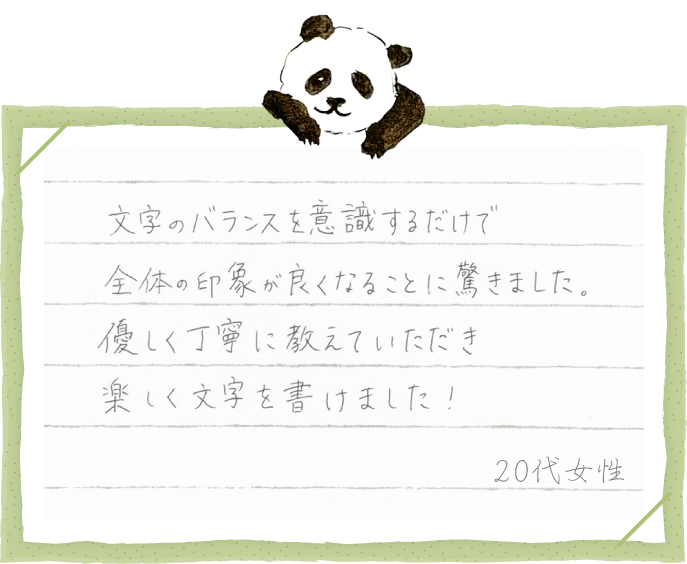 文字のバランスを意識するだけで
全体の印象が良くなることに驚きました。
優しく丁寧に教えていただき
楽しく文字を書けました!
20代女性